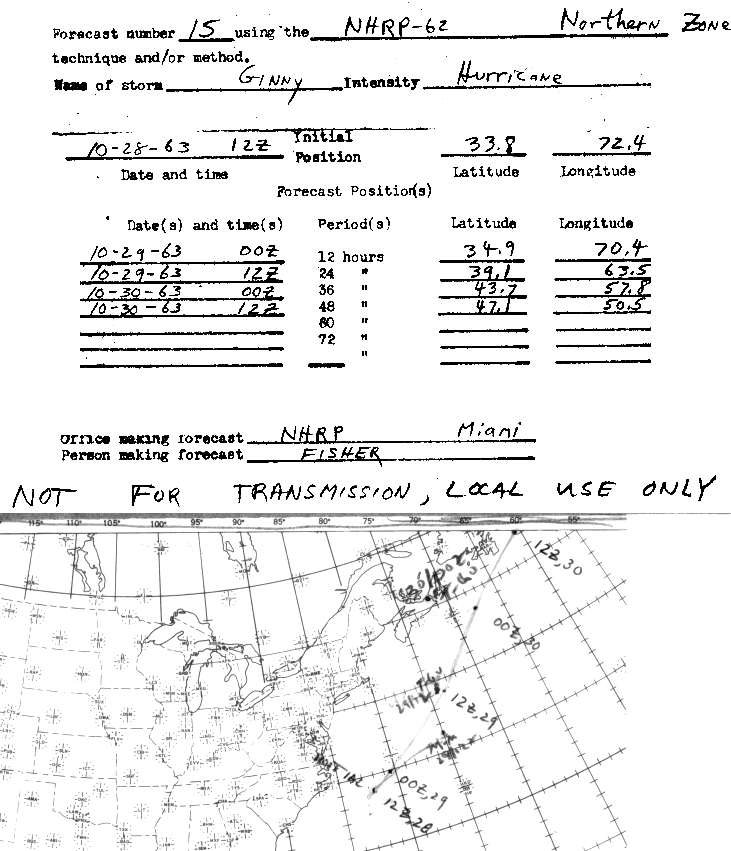 Forecast number 15 using the NHRP-62 Northern Zone
technique and/or method.
Name of storm GINNY Intensity Hurricane
10-28-63 12Z Initial Position 33.8 72.4
Date and time Latitude Longitude
Forecast Position(s)
Date(s) and time(s) Period(s) Latitude Longitude
10-29-63 00Z 12 hours 34.9 70.4
10-29-63 12Z 24 " 39.1 63.5
10-30-63 00Z 36 " 43.7 57.8
10-30-63 12Z 48 " 47.1 50.5
60 "
72 "
"
Office making forecast NHRP Miami
Person making forecast FISHER
NOT FOR TRANSMISSION, LOCAL USE ONLY
115° 110° 105° 100° 95° 90° 85° 80° 75° 70° 65° 60° 55°
12Z,30
00Z,30
12Z,29
00Z,29
12Z,28